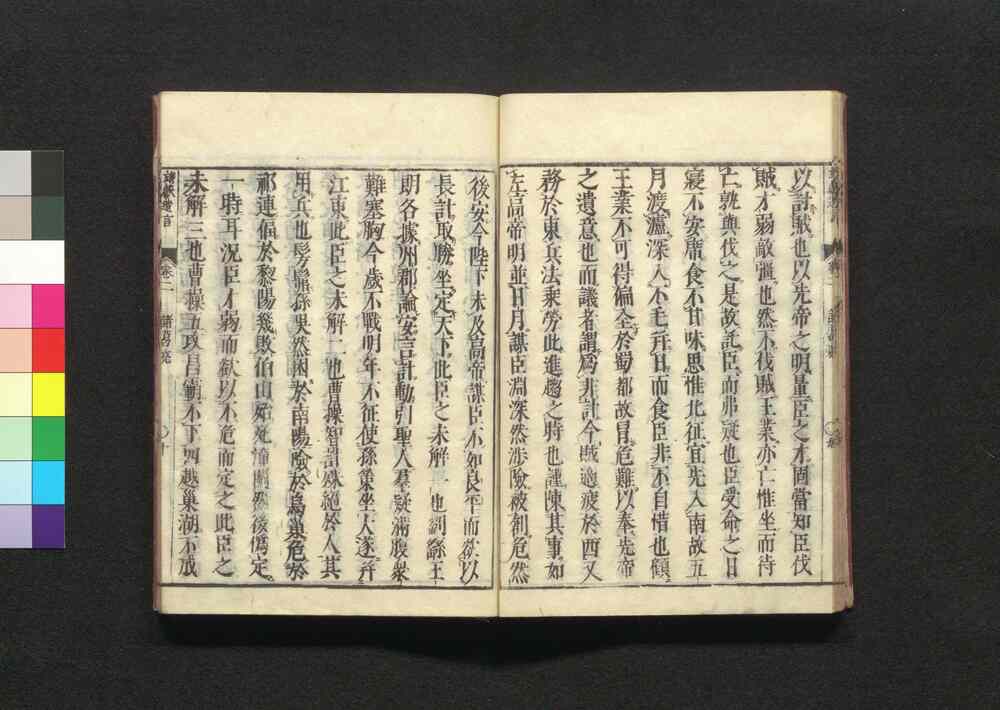 以討賊也以先帝之明量臣之才固當知臣伐
賊才弱敵彊也然不伐賊王業亦亡惟坐而待
亡孰與伐之是故託臣而弗疑也臣受命之日
寢不安席食不甘味思惟北征宜先入南故五
月渡瀘深入不毛幷日而食臣非不自惜也顧
王業不可得偏全於蜀都故冒危難以奉先帝
之遺意也而議者謂爲非計今賊適疲於西又
務於東兵法乘勞此進趨之時也謹陳其事如
左高帝明並日月謀臣淵深然涉險被創危然
後安今陛下未及高帝謀臣不如良平而欲以
長計取勝坐定天下此臣之未解一也劉繇王
朗各據州郡論安言計動引聖人羣疑滿腹衆
難塞胸今歲不戰明年不征使孫策坐大遂幷
江東此臣之未解二也曹操智計殊絕於人其
用兵也髣髴孫吳然困於南陽險於烏巢危於
祁連偪於黎陽幾敗伯山殆死潼關然後僞定
一時耳況臣才弱而欲以不危而定之此臣之
未解三也曹操五攻昌霸不下四越巢湖不成
靖獻遺言 卷二 諸葛亮 十